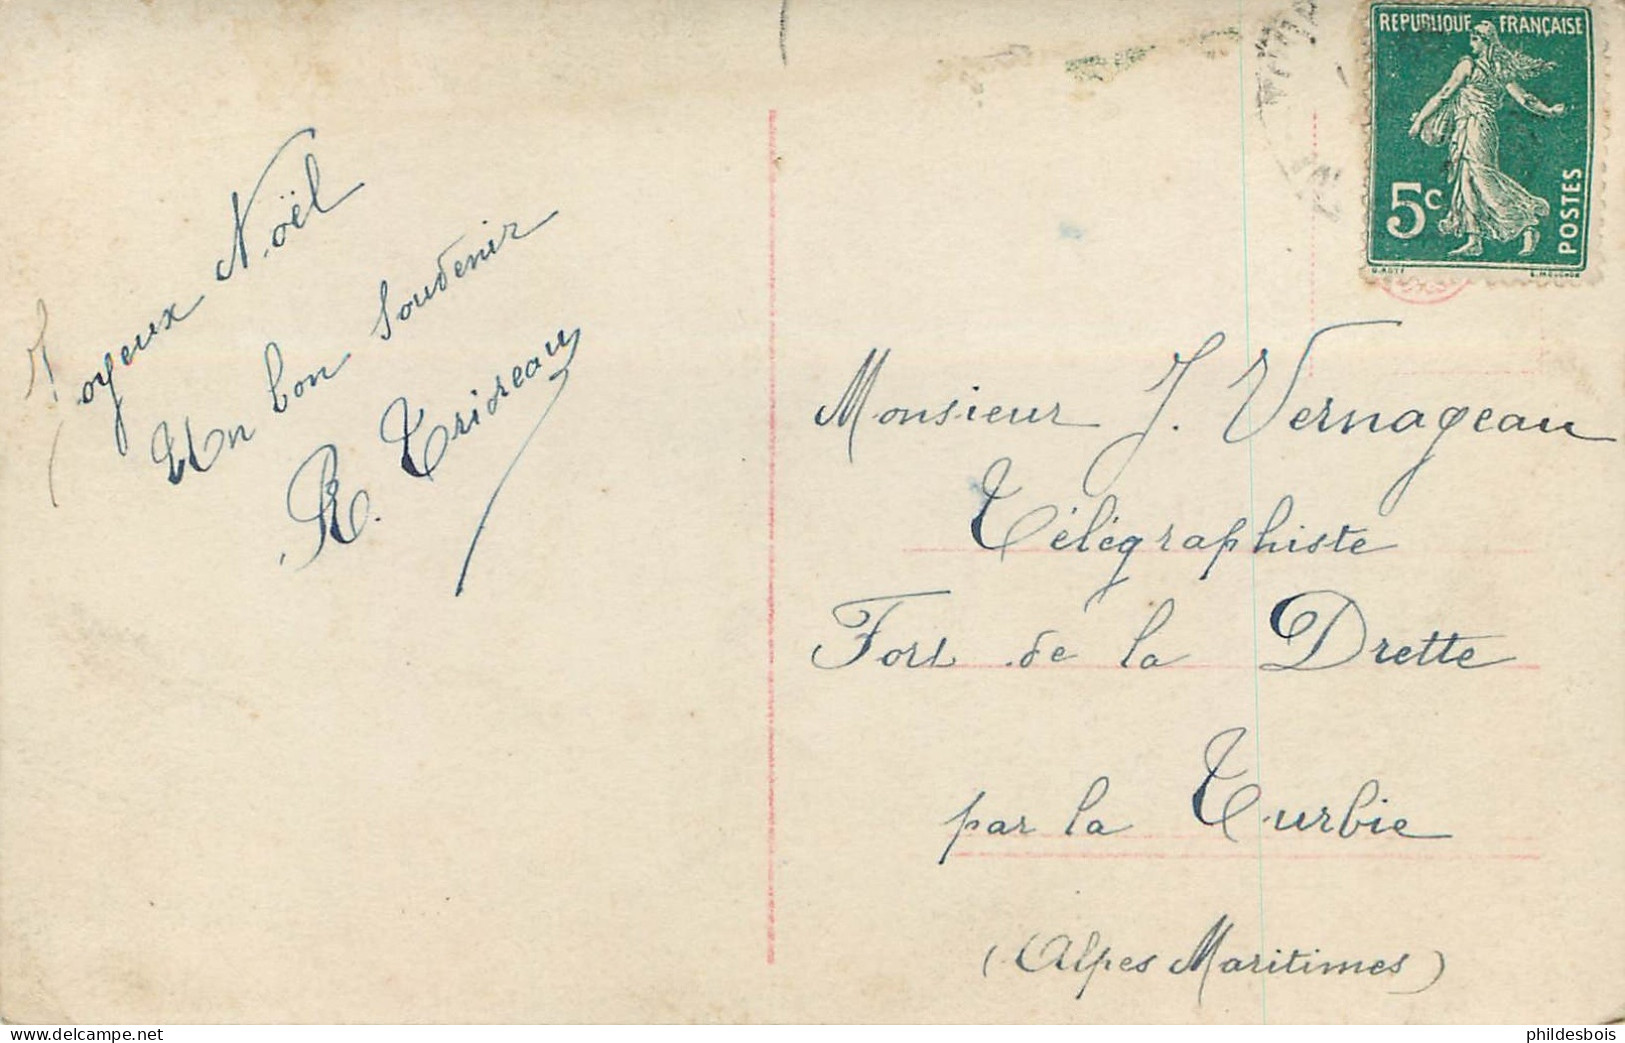 Joyeux Noël
Un bon souvenir
R. Trioreau
REPUBLIQUE FRANÇAISE
5c
POSTES
O. ROTY
E. MOUCHON
Monsieur J. Vernageau
Télégraphiste
Fort de la Drette
par la Turbie
(Alpes Maritimes)
www.delcampe.net
phildesbois